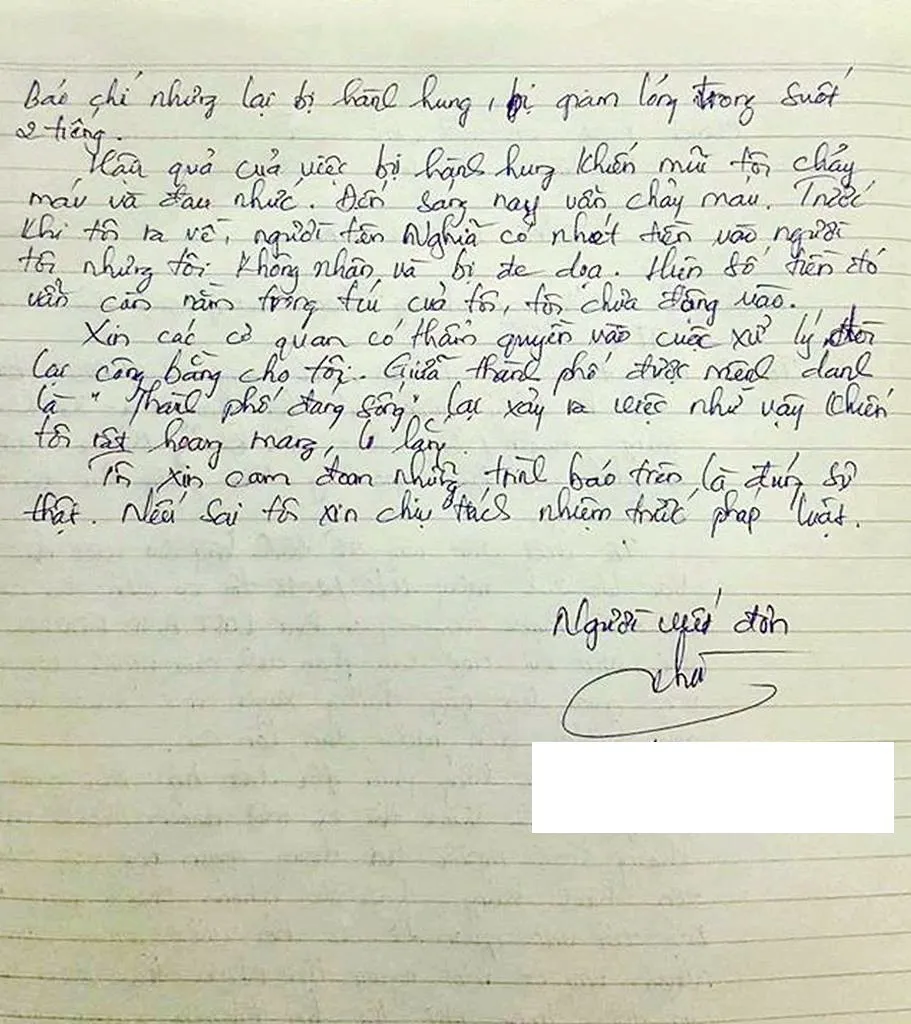 Báo chí nhưng lại bị hành hung, bị giam lỏng trong suốt
2 tiếng.
Hậu quả của việc bị hành hung khiến mũi tôi chảy
máu và đau nhức. Đến sáng nay vẫn chảy máu. Trước
khi tôi ra về, người tên Nghĩa có nhét tiền vào người
tôi nhưng tôi không nhận và bị đe dọa. Hiện số tiền đó
vẫn còn nằm trong túi của tôi, tôi chưa động vào.
Xin các cơ quan có thẩm quyền vào cuộc xử lý, đòi
lại công bằng cho tôi. Giữa thành phố được mệnh danh
là "Thành phố đáng sống" lại xảy ra việc như vậy khiến
tôi rất hoang mang, lo lắng.
Tôi xin cam đoan những trình báo trên là đúng sự
thật. Nếu sai tôi xin chịu trách nhiệm trước pháp luật.
Người viết đơn